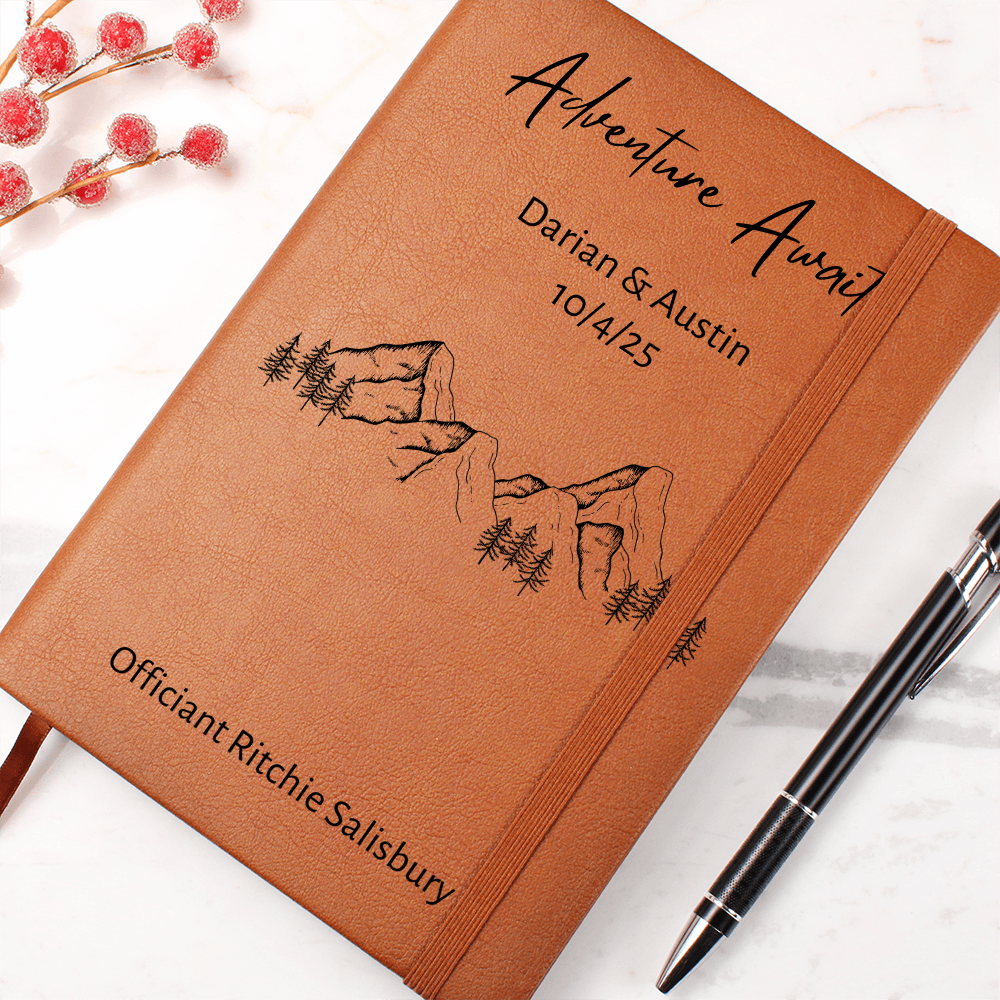 Adventure Await
Darian & Austin
10/4/25
Officiant Ritchie Salisbury